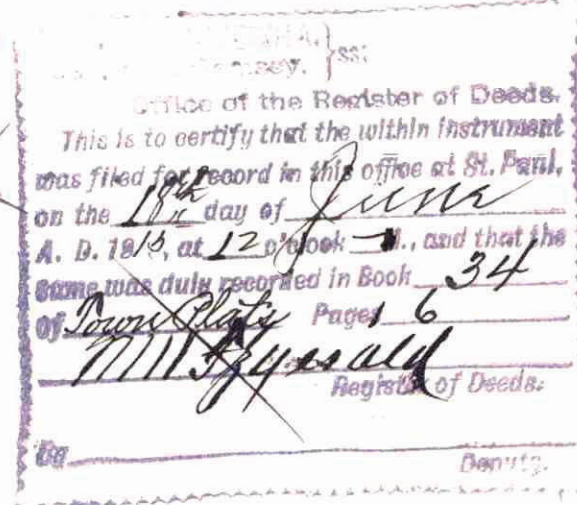 ss:
Office of the Register of Deeds.
This is to certify that the within instrument
was filed for record in this office at St. Paul,
on the 18th day of June
A. D. 1915, at 12 o'clock M., and that the
same was duly recorded in Book 34
of Town Plats Page 6
Register of Deeds.
By
Deputy.